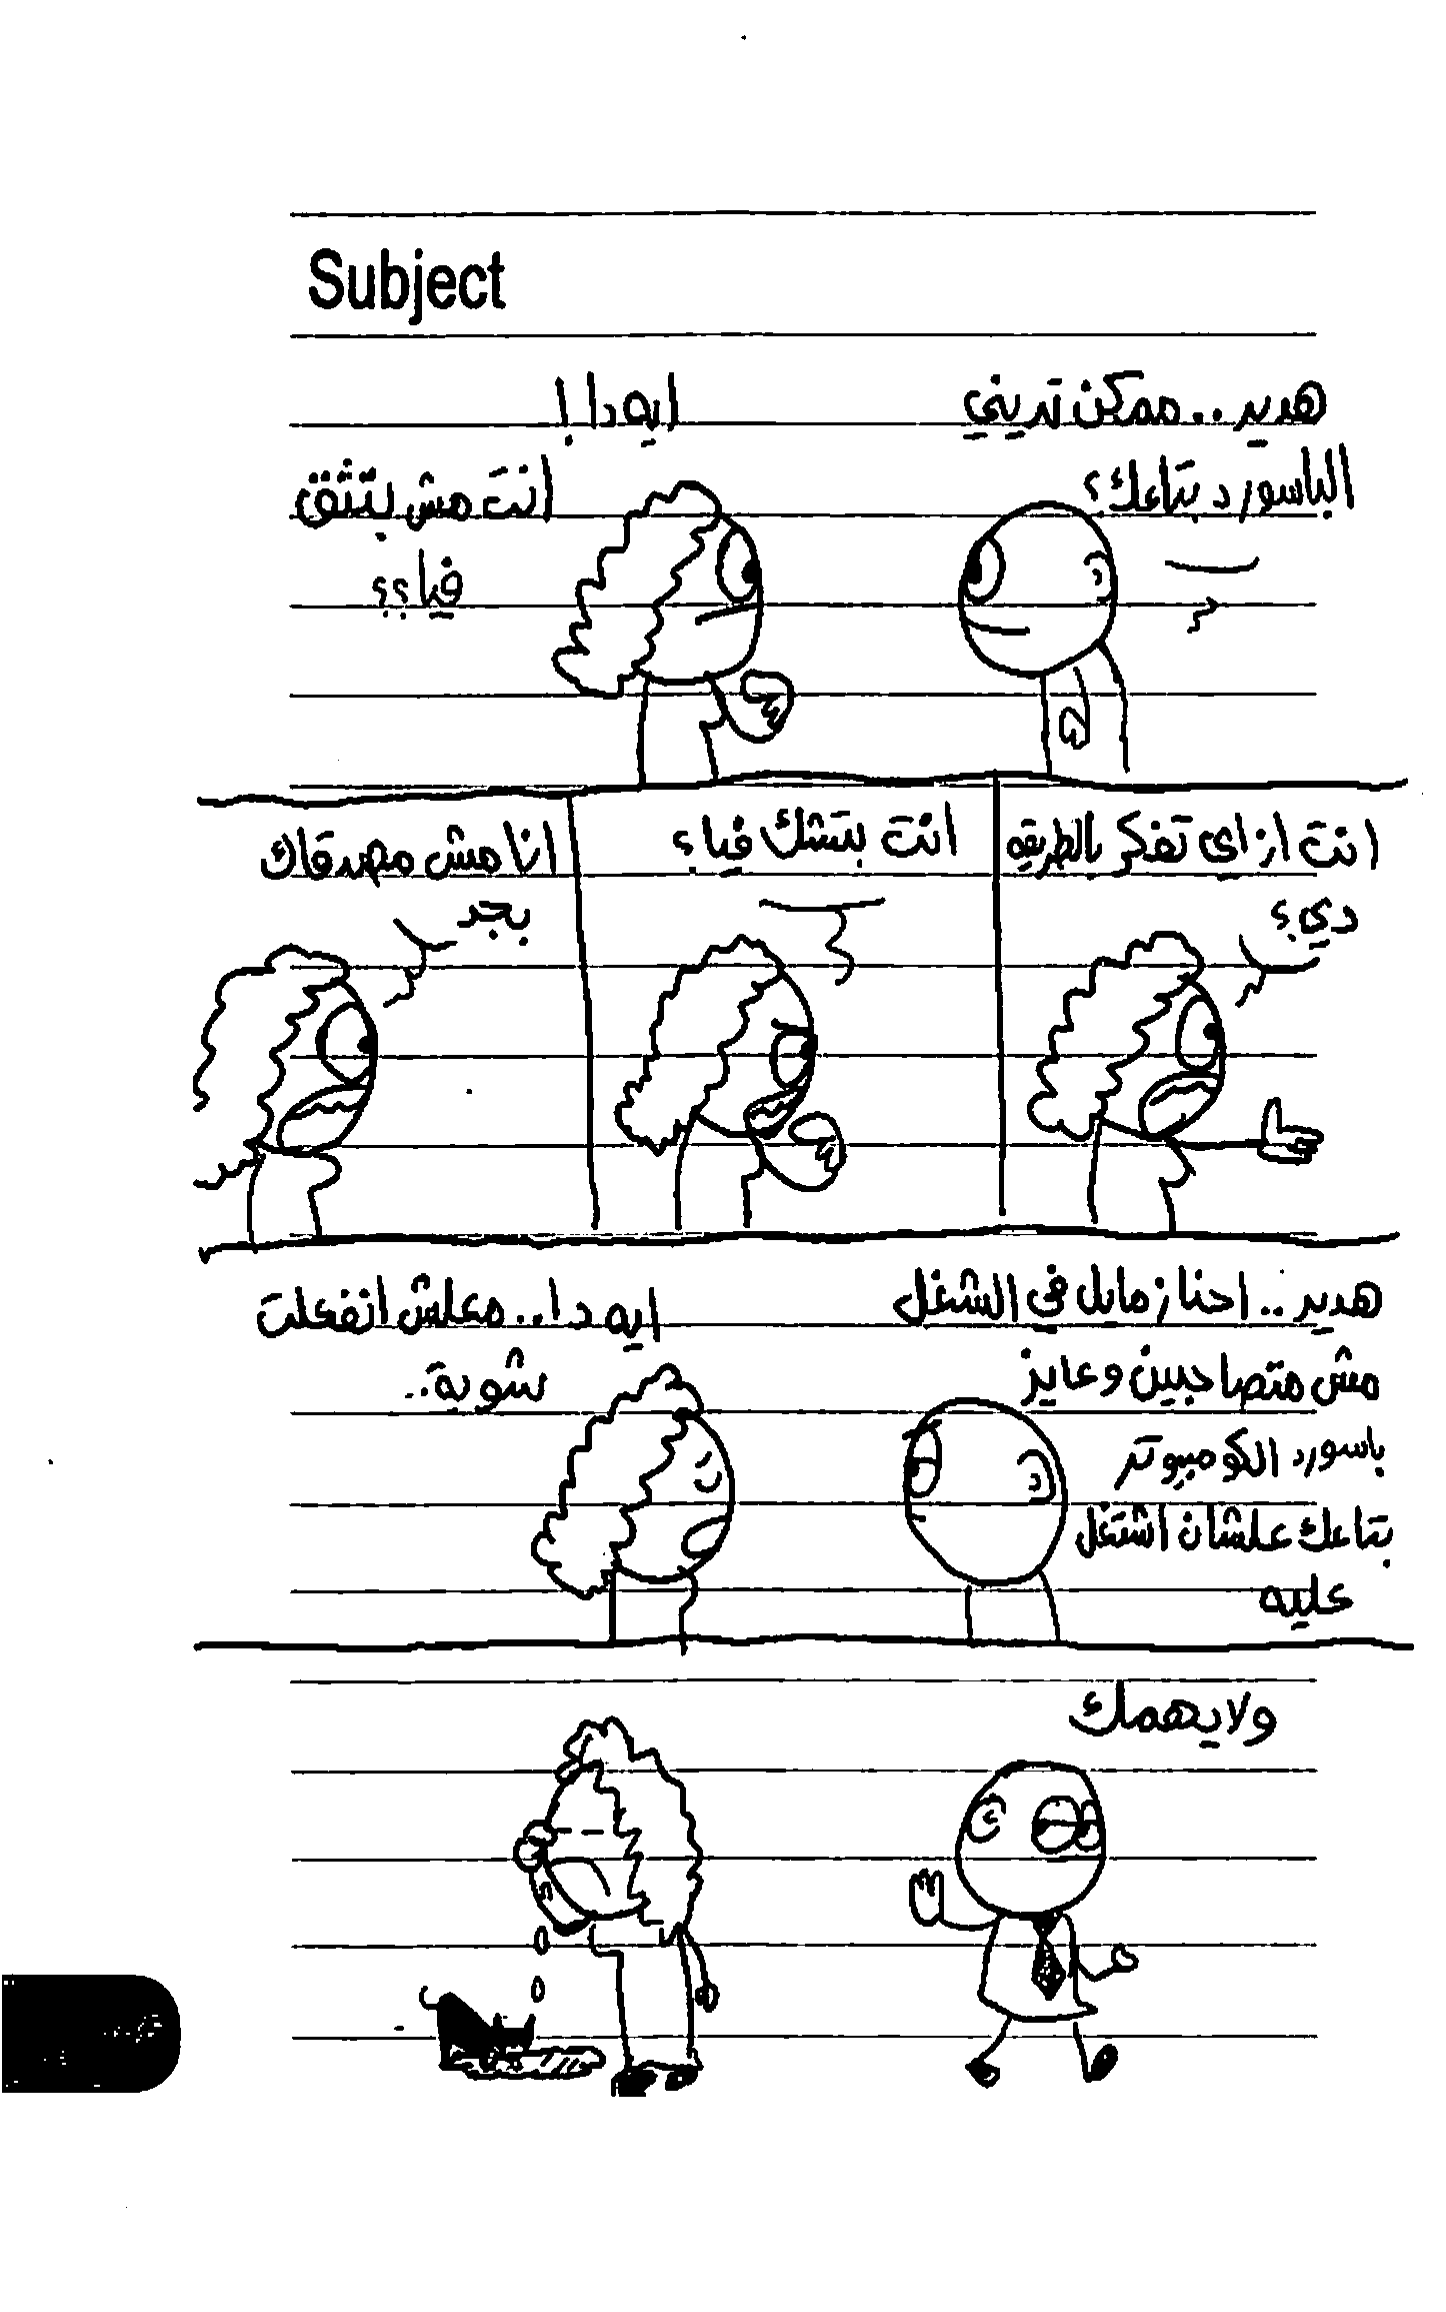 Subject
هدير.. ممكن تديني
الباسورد بتاعك؟
ايه دا!
انت مش بتثق
فيا؟؟
انت ازاي تفكر بالطريقه
دي؟
انت بتشك فيا؟
انا مش مصدقاك
بجد
هدير.. احنا زمايل في الشغل
مش متصاحبين وعايز
باسورد الكومبيوتر
بتاعك علشان اشتغل
عليه
ايه دا.. معلش انفعلت
شوية..
ولا يهمك